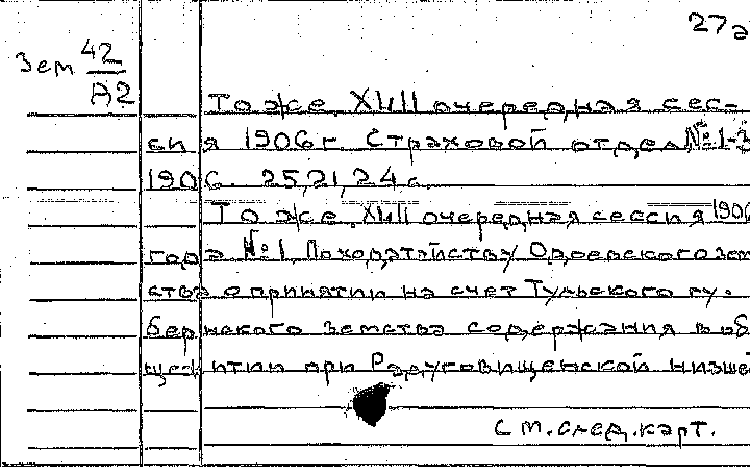 27а
Зем 42
А2
То же. XLII очередная сес-
сия 1906 г. Страховой отдел №1-3
1906. 25, 21, 24 с.
То же. XLII очередная сессия 1906
года №1. По ходатайству Одоевского зем
ства о принятии на счет Тульского гу.
бернского земства содержания в об
щежитии при низше
См. след. карт.